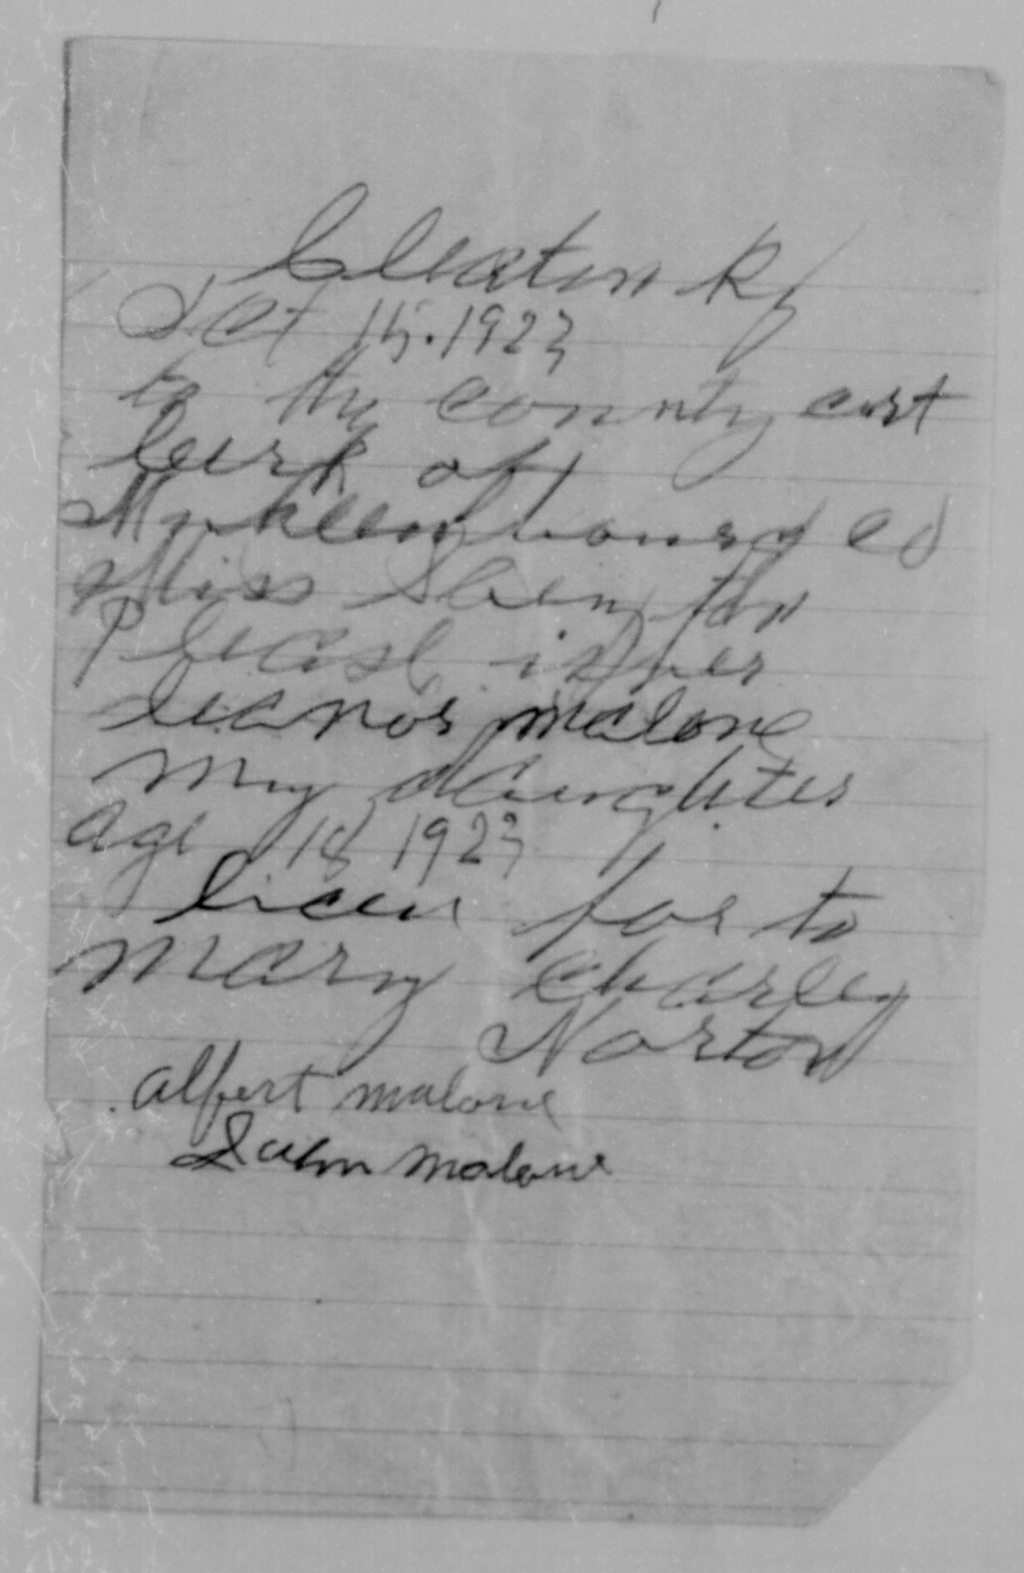 Cleaton Ky
Oct 15. 1923
to thy county cort
Clerk of
Muhlenbourg co
Miss
Please
leanor malone
my daughter
age 18 1923
licen for to
mary Charley
Norton
albert malone
malone